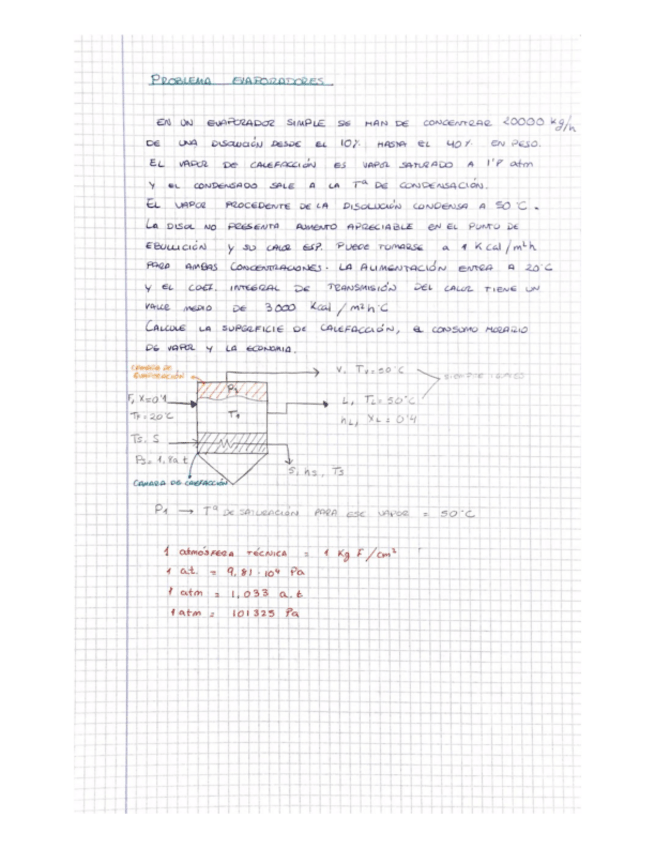 PROBLEMA EVAPORADORES
EN UN EVAPORADOR SIMPLE SE HAN DE CONCENTRAR 20000 kg/h
DE UNA DISOLUCIÓN DESDE EL 10% HASTA EL 40% EN PESO.
EL VAPOR DE CALEFACCIÓN ES VAPOR SATURADO A 1'8 atm
Y EL CONDENSADO SALE A LA Tª DE CONDENSACIÓN.
EL VAPOR PROCEDENTE DE LA DISOLUCIÓN CONDENSA A 50°C.
LA DISOL NO PRESENTA AUMENTO APRECIABLE EN EL PUNTO DE
EBULLICIÓN Y SU CALOR ESP. PUEDE TOMARSE a 1 Kcal/m²h
PARA AMBAS CONCENTRACIONES. LA ALIMENTACIÓN ENTRA A 20°C
Y EL COEF. INTEGRAL DE TRANSMISIÓN DEL CALOR TIENE UN
VALOR MEDIO DE 3000 Kcal/m²h°C
CALCULE LA SUPERFICIE DE CALEFACCIÓN, EL CONSUMO HORARIO
DE VAPOR Y LA ECONOMIA.
CAMARA DE
EVAPORACIÓN
V, Tv=50°C
P1
SIEMPRE IGUALES
F, X=0'1
TF=20°C
T1
L, TL=50°C
hL, XL=0'4
TS, S
PS=1,8at
S, hS, TS
CAMARA DE CALEFACCIÓN
P1 → Tª DE SATURACIÓN PARA ESE VAPOR = 50°C
1 atmósfera técnica = 1 Kg F/cm²
1 at = 9,81·10⁴ Pa
1 atm = 1,033 a.t
1 atm = 101325 Pa